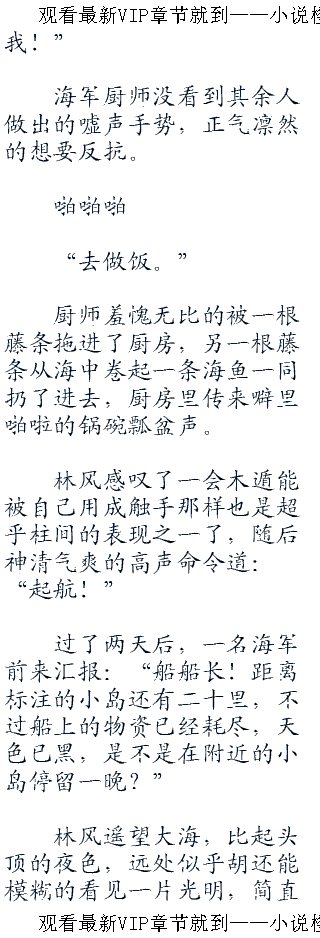 观看最新VIP章节就到——小说
我！”
海军厨师没看到其余人
做出的嘘声手势，正气凛然
的想要反抗。
啪啪啪
“去做饭。”
厨师羞愧无比的被一根
藤条拖进了厨房，另一根藤
条从海中卷起一条海鱼一同
扔了进去，厨房里传来噼里
啪啦的锅碗瓢盆声。
林风感叹了一会木遁能
被自己用成触手那样也是超
乎柱间的表现之一了，随后
神清气爽的高声命令道：
“起航！”
过了两天后，一名海军
前来汇报：“船船长！距离
标注的小岛还有二十里，不
过船上的物资已经耗尽，天
色已黑，是不是在附近的小
岛停留一晚？”
林风遥望大海，比起头
顶的夜色，远处似乎胡还能
模糊的看见一片光明，简直
观看最新VIP章节就到——小说